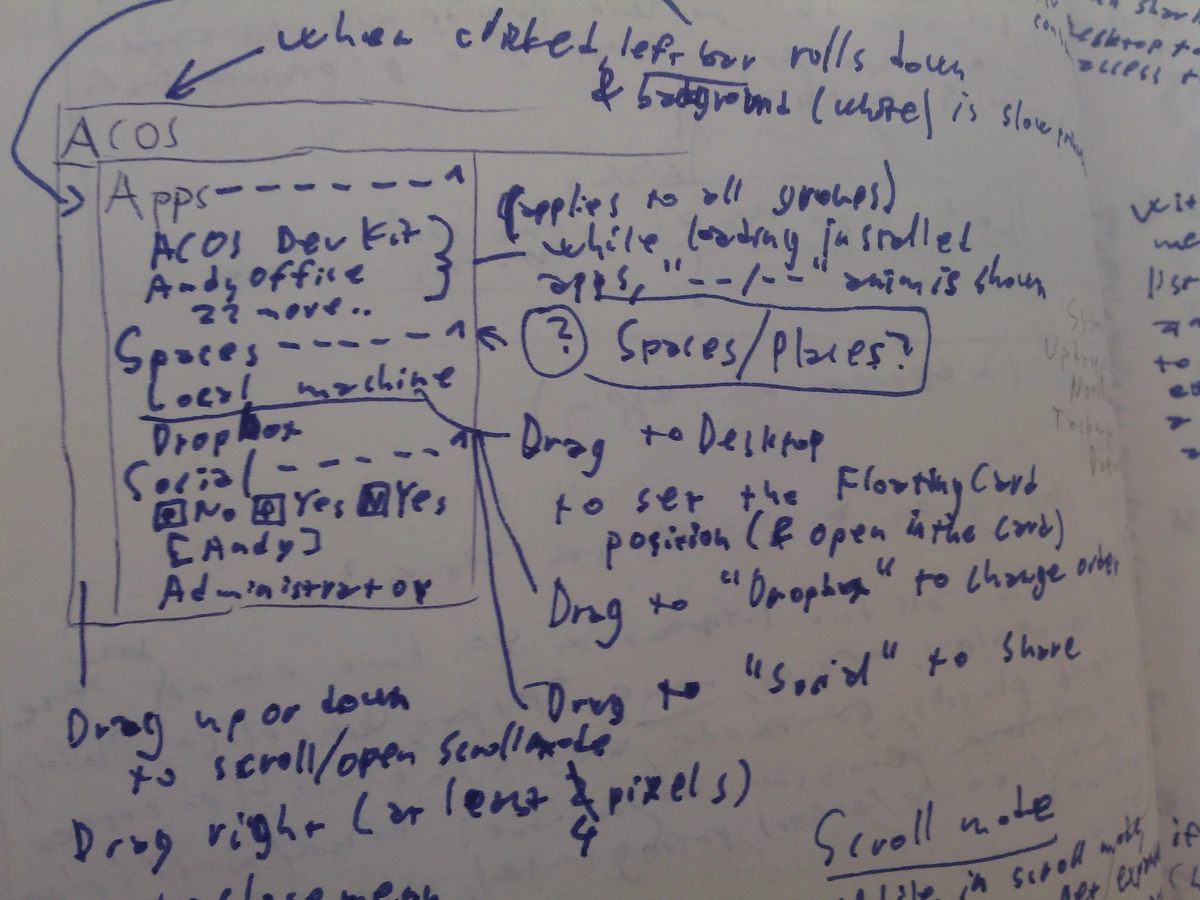 when clicked, left bar rolls down
& background (white) is slow
ACOS
Apps - - - - - - - ^
ACOS Dev Kit
Andy office
22 more..
Spaces - - - - - ^
Local machine
Dropbox
Social - - - - - - ^
No Yes Yes
[Andy]
Administrator
(applies to all groups)
while loading installed
apps, "--/--" anim is shown
? Spaces/Places?
Drag to Desktop
to set the FloatingCard
position (& open in the Card)
Drag to "Dropbox" to change order
Drag to "Social" to share
Drag up or down
to scroll/open scrollmode
Drag right (at least 4 pixels)
to close menu
Scroll mode
while in scroll mode
Desktop to
access